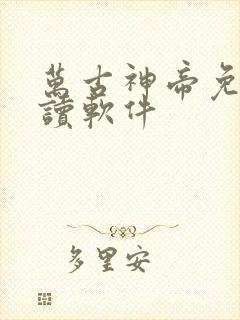 萬古神帝免
讀軟件
多里安